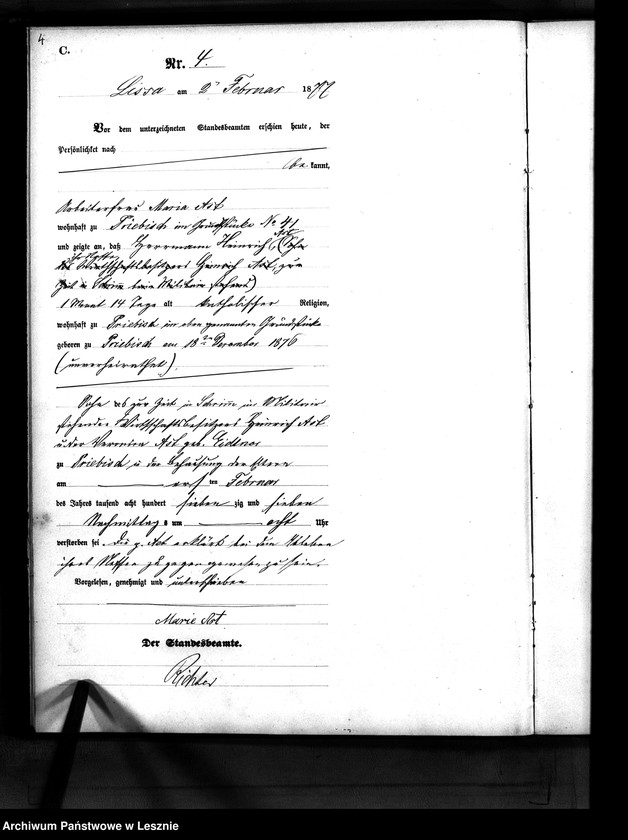 4
C.
Nr. 4.
Lissa am 2ten Februar 1877
Vor dem unterzeichneten Standesbeamten erschien heute, der
Persönlichkeit nach
bekannt,
Arbeiterfrau Maria Ast
wohnhaft zu Priebisch im Grundstücke No 41
und zeigte an, daß Herrmann Heinrich Ast, Sohn
des Wirthschaftsbesitzers Heinrich Ast, zur
Zeit in Schrim beim Militair stehend)
1 Monat 14 Tage alt katholischer Religion,
wohnhaft zu Priebisch im oben genannten Grundstücke
geboren zu Priebisch am 18ten December 1876
(unverheirathet).
Sohn des zur Zeit in Schrim im Militair
stehenden Wirthschaftsbesitzers Heinrich Ast
und der Ast geb.
zu Priebisch in der Behausung der Eltern
am ersten Februar
des Jahres tausend acht hundert siebenzig und sieben
Nachmittags um acht Uhr
verstorben sei. Die p. Ast erklärt bei dem Ableben
ihres Neffen zugegen gewesen zu sein.
Vorgelesen, genehmigt und unterschrieben
Marie Ast
Der Standesbeamte.
Richter
Archiwum Państwowe w Lesznie